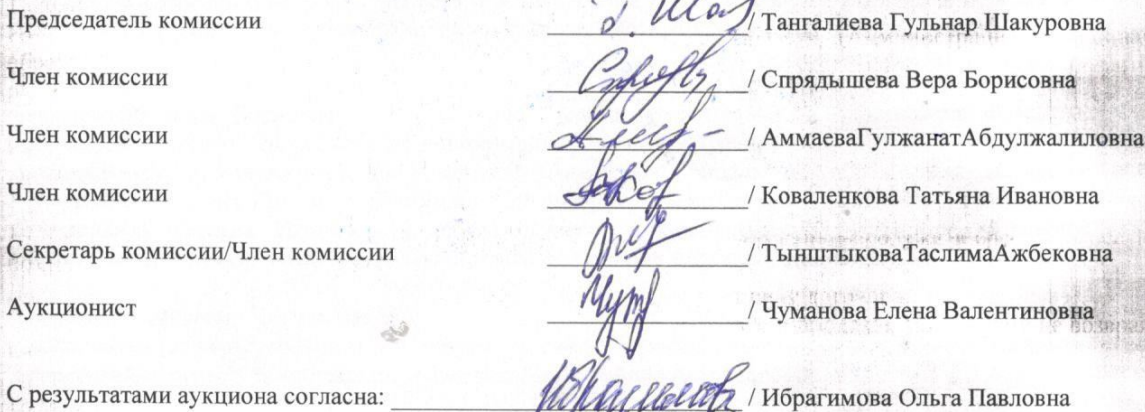 Председатель комиссии / Тангалиева Гульнар Шакуровна
Член комиссии / Спрядышева Вера Борисовна
Член комиссии / АммаеваГулжанатАбдулжалиловна
Член комиссии / Коваленкова Татьяна Ивановна
Секретарь комиссии/Член комиссии / ТынштыковаТаслимаАжбековна
Аукционист / Чуманова Елена Валентиновна
С результатами аукциона согласна: / Ибрагимова Ольга Павловна